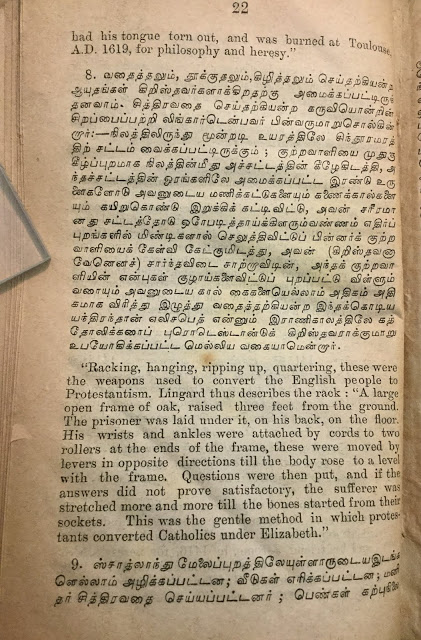 22
had his tongue torn out, and was burned at Toulouse
A.D. 1619, for philosophy and heresy."
8. வதைத்தலும், தூக்குதலும், கிழித்தலும் செய்தற்கியன்ற
ஆயுதங்கள் கிறிஸ்தவர்களாக்கிறதற்கு அமைக்கப்பட்டிருந்
தனவாம். சித்திரவதை செய்தற்கியன்ற கருவியொன்றின்
சிறப்பைப்பற்றி லிங்கார்டென்பவர் பின்வருமாறுசொல்கின்
றார்:—நிலத்திலிருந்து மூன்றடி உயரத்திலே சிந்தூரமரத்
திற் சட்டம் வைக்கப்பட்டிருக்கும்; குற்றவாளியை முதுகு
கீழ்ப்புறமாக நிலத்தின்மீது அச்சட்டத்தின் கீழேகிடத்தி, அ
ந்தச்சட்டத்தின் ஓரங்களிலே அமைக்கப்பட்ட இரண்டு உரு
ளைகளோடு அவனுடைய மணிக்கட்டுகளையும் கணைக்கால்களை
யும் கயிறுகொண்டு இறுக்கிக் கட்டிவிட்டு, அவன் சரீரமா
னது சட்டத்தோடு ஒரேபடித்தாய்க்கிளரும்வண்ணம் எதிர்ப்
புறங்களில் மிண்டிகளால் செலுத்திவிட்டுப் பின்னர்க் குற்ற
வாளியைக் கேள்வி கேட்குமிடத்து, அவன் (கிறிஸ்தவனா
வேனெனச்) சார்ந்தவிடை சாற்றாவிடின், அந்தக் குற்றவா
ளியின் என்புகள் குழாய்களைவிட்டுப் புறப்பட்டு விள்ளும்
வரையும் அவனுடைய கால் கைகளையெல்லாம் அதிகம் அதி
கமாக விரித்து இழுத்து வதைத்தற்கியன்ற இந்தக்கொடிய
யந்திரந்தான் எலிசபெத் என்னும் இராணிகாலத்திலே கத்
தோலிக்கரைப் புரொடெஸ்டாண்டுக் கிறிஸ்தவராக்குமாறு
உபயோகிக்கப்பட்ட மெல்லிய வகையாமென்றார்.
"Racking, hanging, ripping up, quartering, these were
the weapons used to convert the English people to
Protestantism. Lingard thus describes the rack : "A large
open frame of oak, raised three feet from the ground.
The prisoner was laid under it, on his back, on the floor.
His wrists and ankles were attached by cords to two
rollers at the ends of the frame, these were moved by
levers in opposite directions till the body rose to a level
with the frame. Questions were then put, and if the
answers did not prove satisfactory, the sufferer was
stretched more and more till the bones started from their
sockets. This was the gentle method in which protes-
tants converted Catholics under Elizabeth."
9. ஸ்காத்லாந்து மேலைப்புறத்திலேயுள்ளாருடைய
னெல்லாம் அழிக்கப்பட்டன; வீடுகள் எரிக்கப்பட்டன;
தர் சித்திரவதை செய்யப்பட்டனர்; பெண்கள்